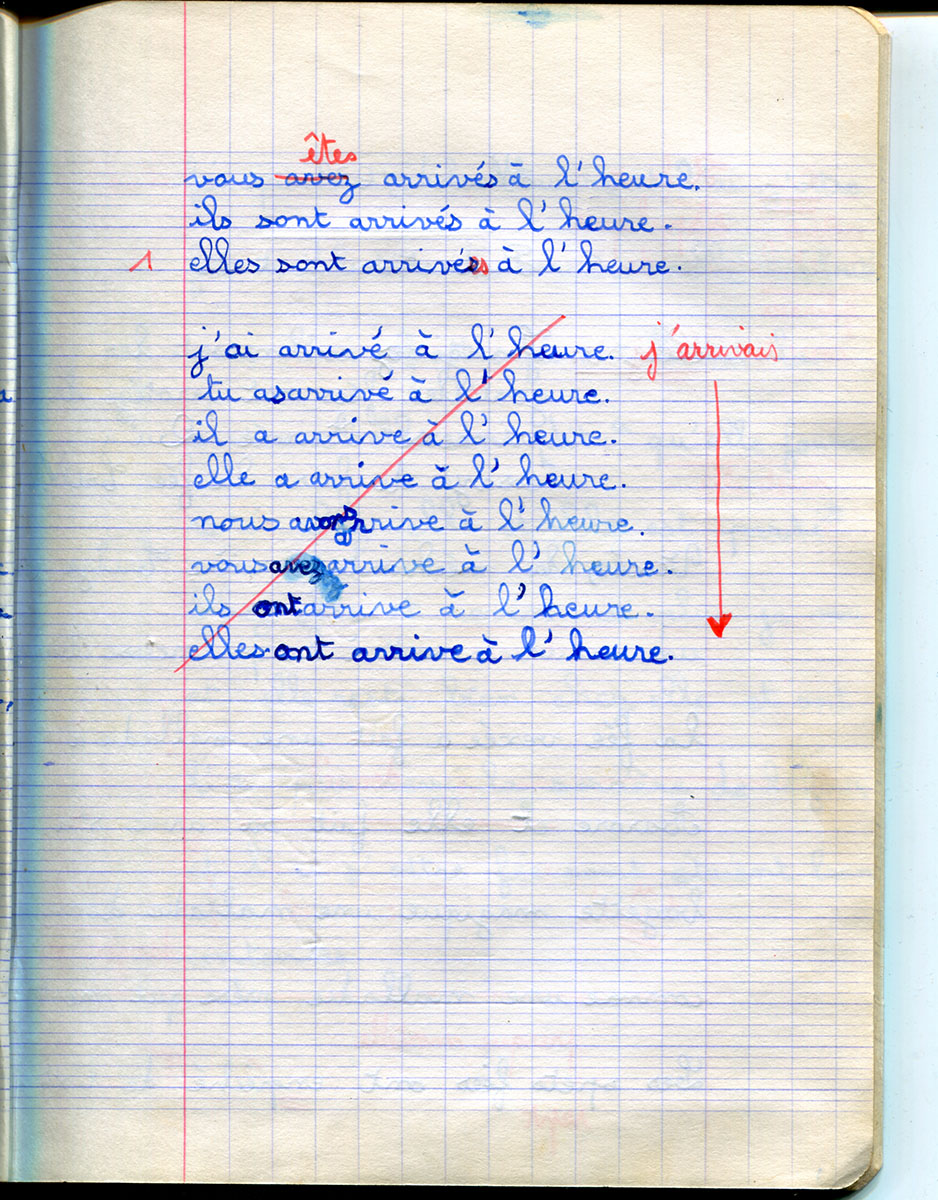 êtes
vous avez arrivés à l'heure.
ils sont arrivés à l'heure.
1 elles sont arrivées à l'heure.
j'ai arrivé à l'heure. j'arrivais
tu as arrivé à l'heure.
il a arrive à l'heure.
elle a arrive à l'heure.
nous avons arrive à l'heure.
vous avez arrive à l'heure.
ils ont arrive à l'heure.
elles ont arrive à l'heure.